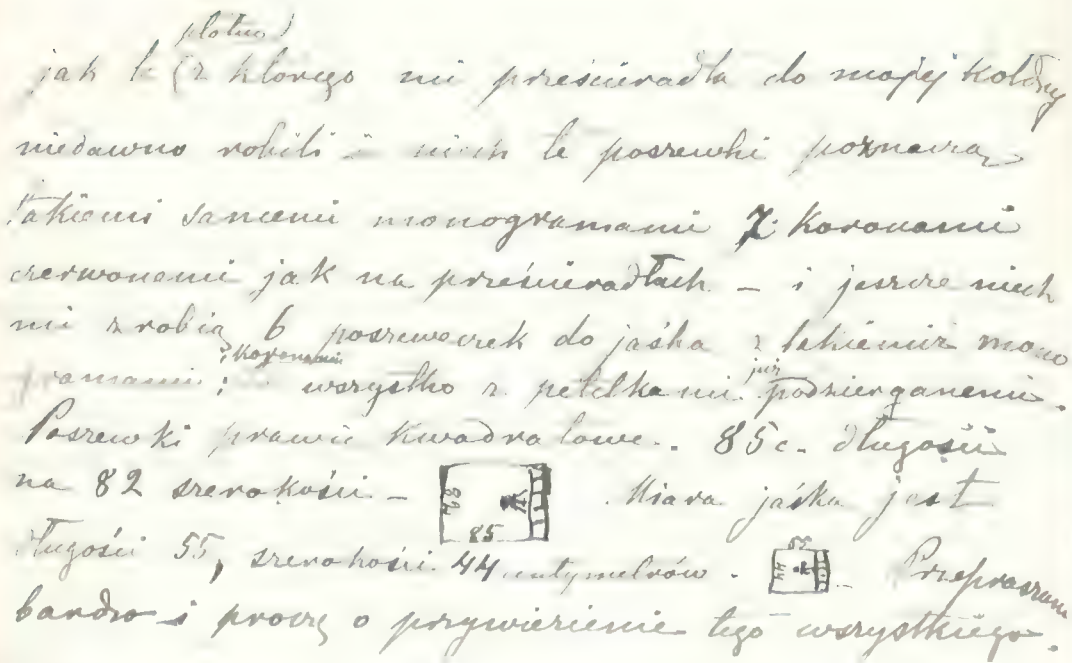 płótno)
jak te (z którego mi prześcieradła do mojej kołdry
niedawno robili – niech te poszewki poznaczą
takiemi samemi monogramami z koronami
czerwonemi jak na prześcieradłach – i jeszcze niech
mi zrobią 6 poszeweczek do jaśka z takiemiż mono
z koronami już
gramami; wszystko z pętelkami podzierganemi.
Poszewki prawie kwadratowe. 85 c. długości
na 82 szerokości – Miara jaśka jest
85
długości 55, szerokości 44 centymetrów. Przepraszam
55
44
bardzo i proszę o przywiezienie tego wszystkiego.